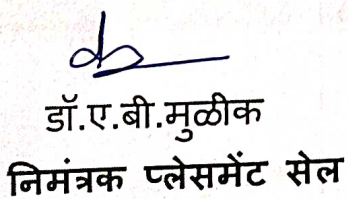 डॉ.ए.बी.मुळीक
निमंत्रक प्लेसमेंट सेल